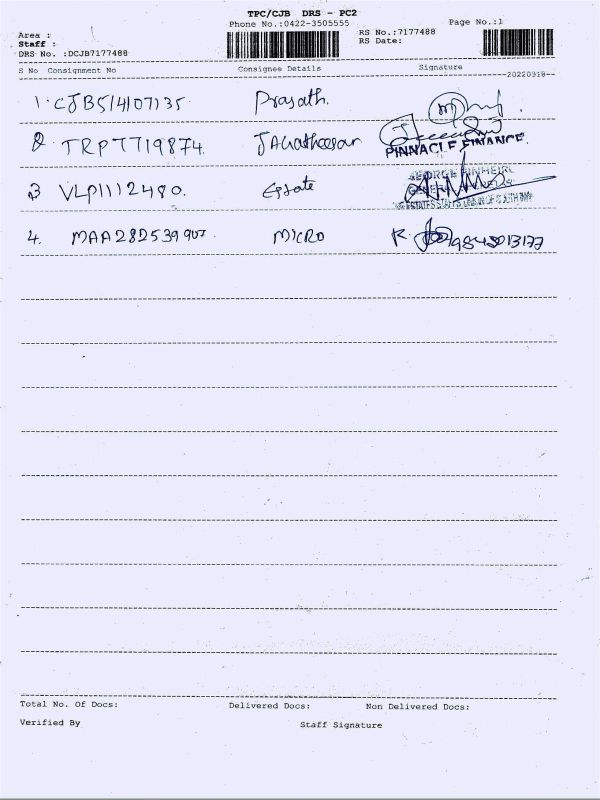 TPC/CJB DRS - PC2
Phone No.:0422-3505555 Page No.:1
Area : RS No.:7177488
Staff : RS Date:
DRS No. :DCJB7177488
S No Consignment No Consignee Details Signature
--20220318--
1. CJB514107135 Prasath.
2 TRPT7719874. Jagatheesan
PINNACLE FINANCE.
3 VLP1112480. Estate
4. MAA282539907. MICRO R. 9843013177
Total No. Of Docs: Delivered Docs: Non Delivered Docs:
Verified By Staff Signature